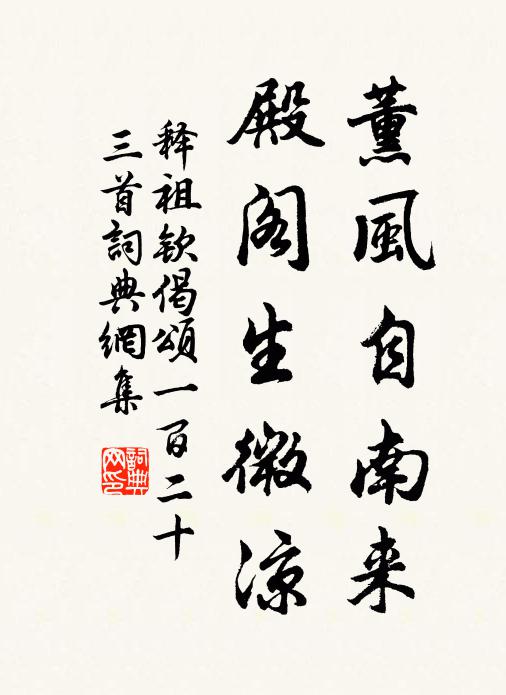 薰風自南来
殿阁生微凉
释祖钦偈頌一百二十
三首詞典網集
詞典
网印